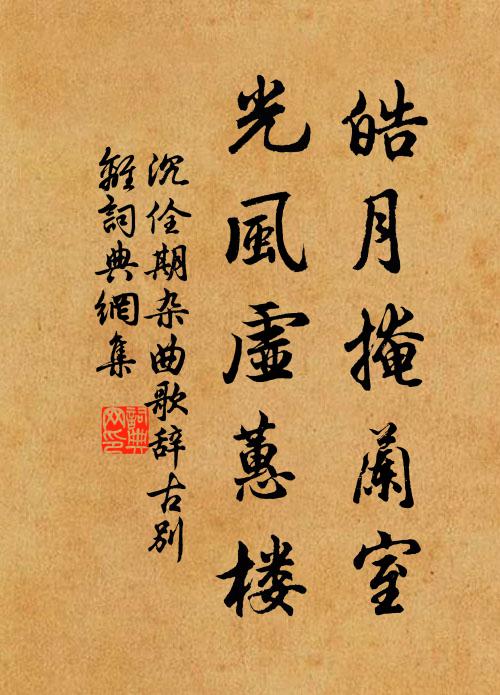 皓月掩蘭室
光風虛蕙楼
沉佺期杂曲歌辞古别
離詞典網集
詞典
网印